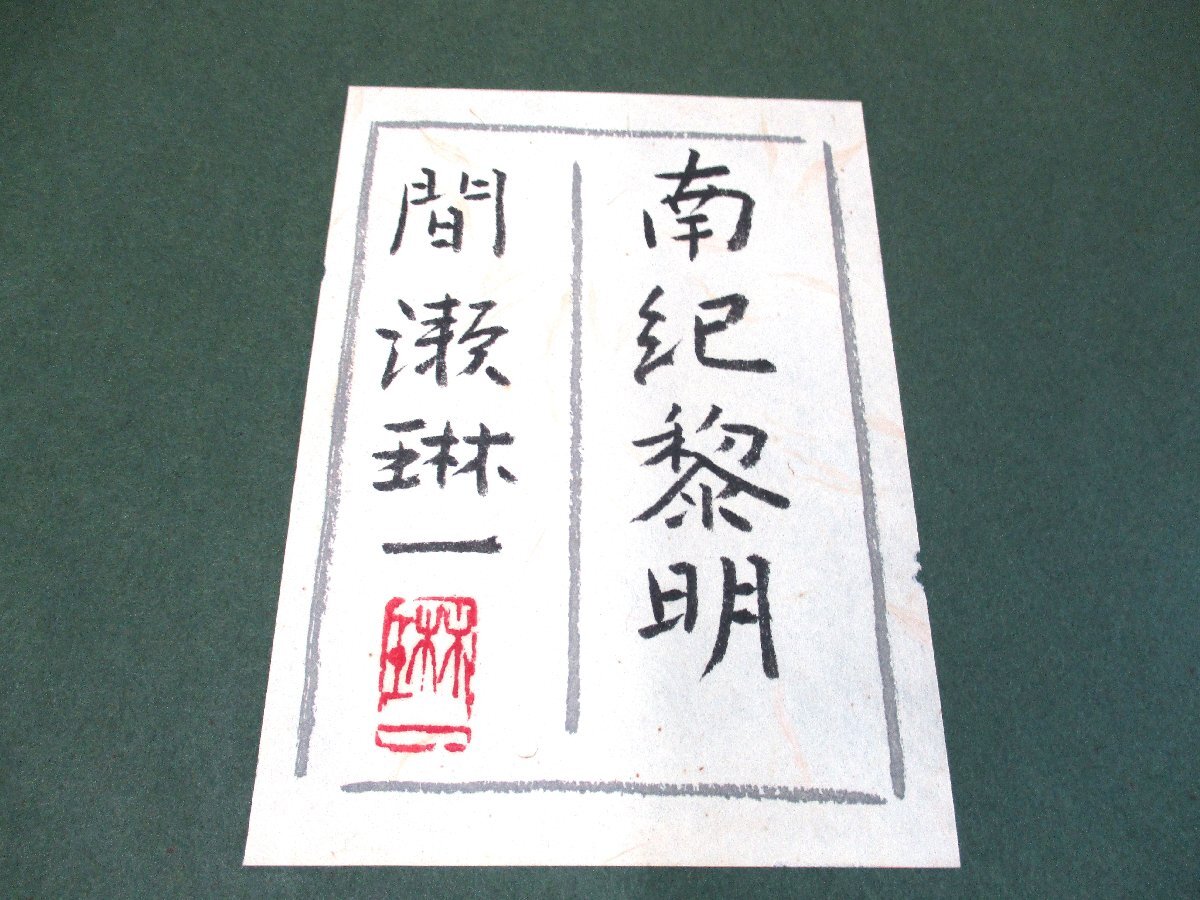 南紀黎明
間瀬琳一
琳一